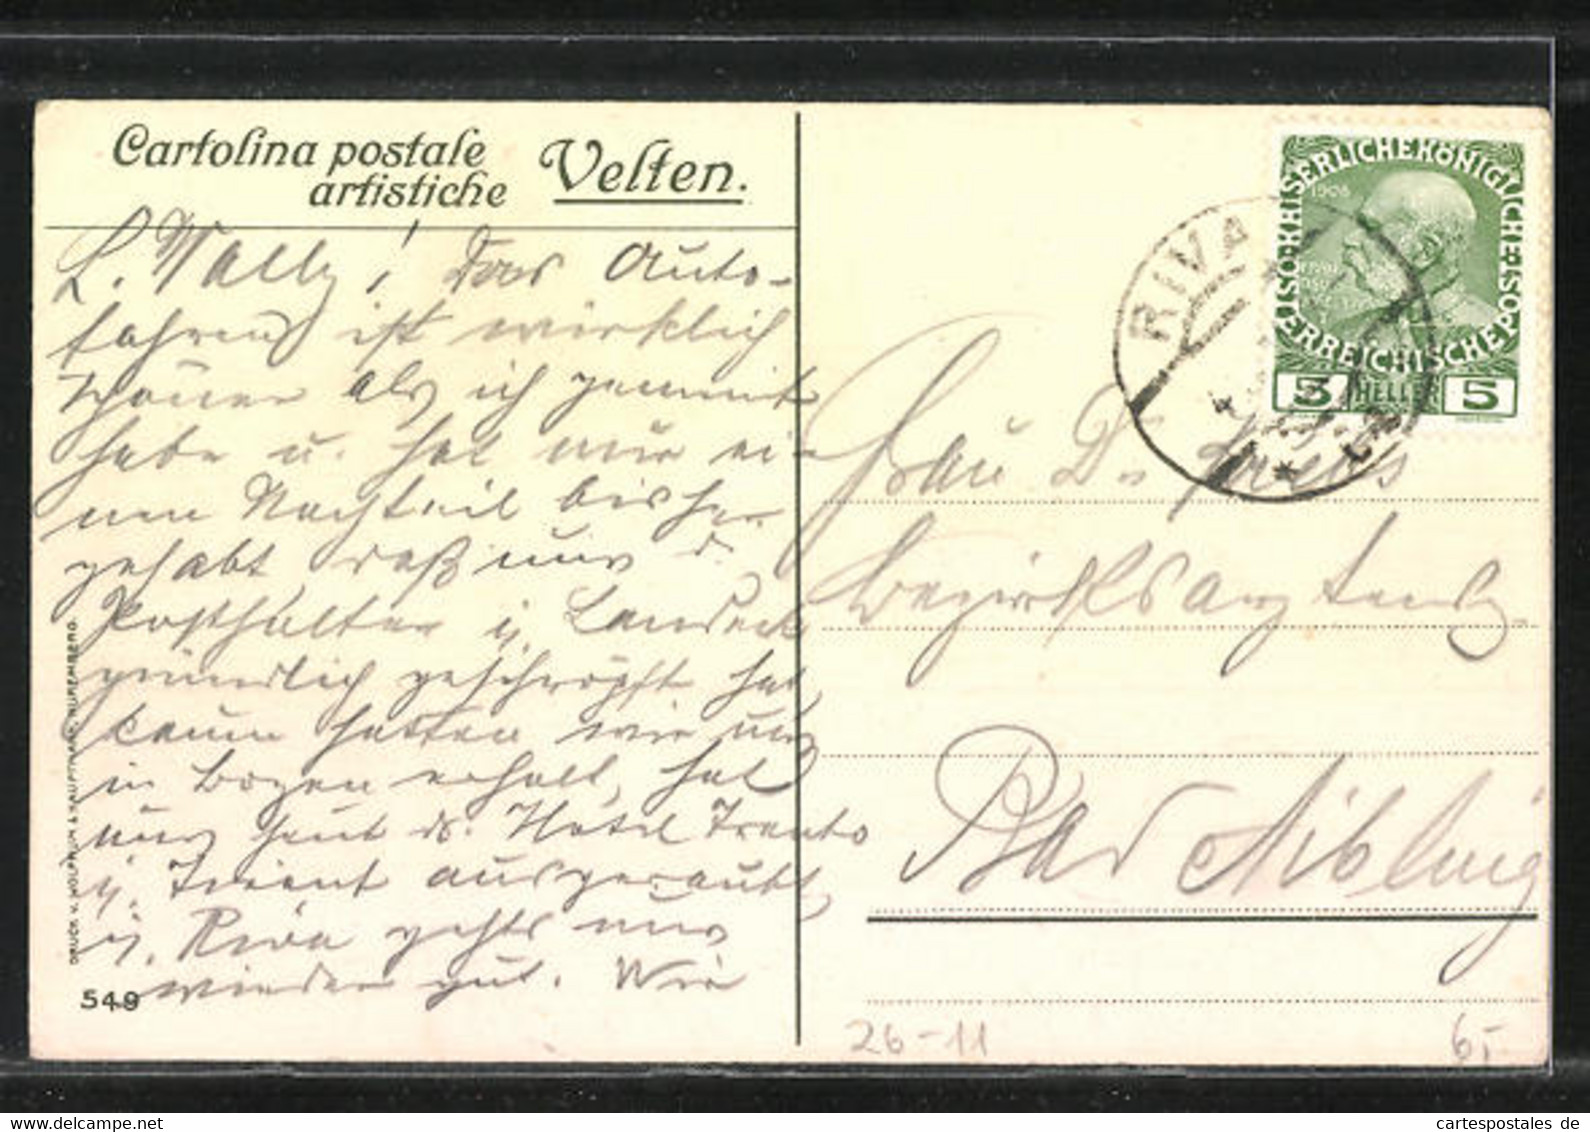 Cartolina postale
artistiche
Velten.
L. Wally! Das Auto-
fahren ist wirklich
schöner als ich gemeint
habe u. hat nur ei-
nen Nachteil bisher
gehabt, daß uns d.
Posthalter i. Landeck
gründlich geschröpft hat,
kaum hatten wir uns
in Bozen erholt, hat
uns heut d. Hotel Trento
i. Trient ausgeraubt,
i. Riva gehts uns
wieder gut. Wir
DRUCK V. WOLFRUM & HAUPTMANN, NUREMBERG.
549
ÖSTERREICHISCHE POST
KAISERLICHEKÖNIGLICHE
1908
5 HELLER 5
RIVA
Frau Dr
Bezirksarztens
Bad Aibling
26-11
6,-
cartespostales.de